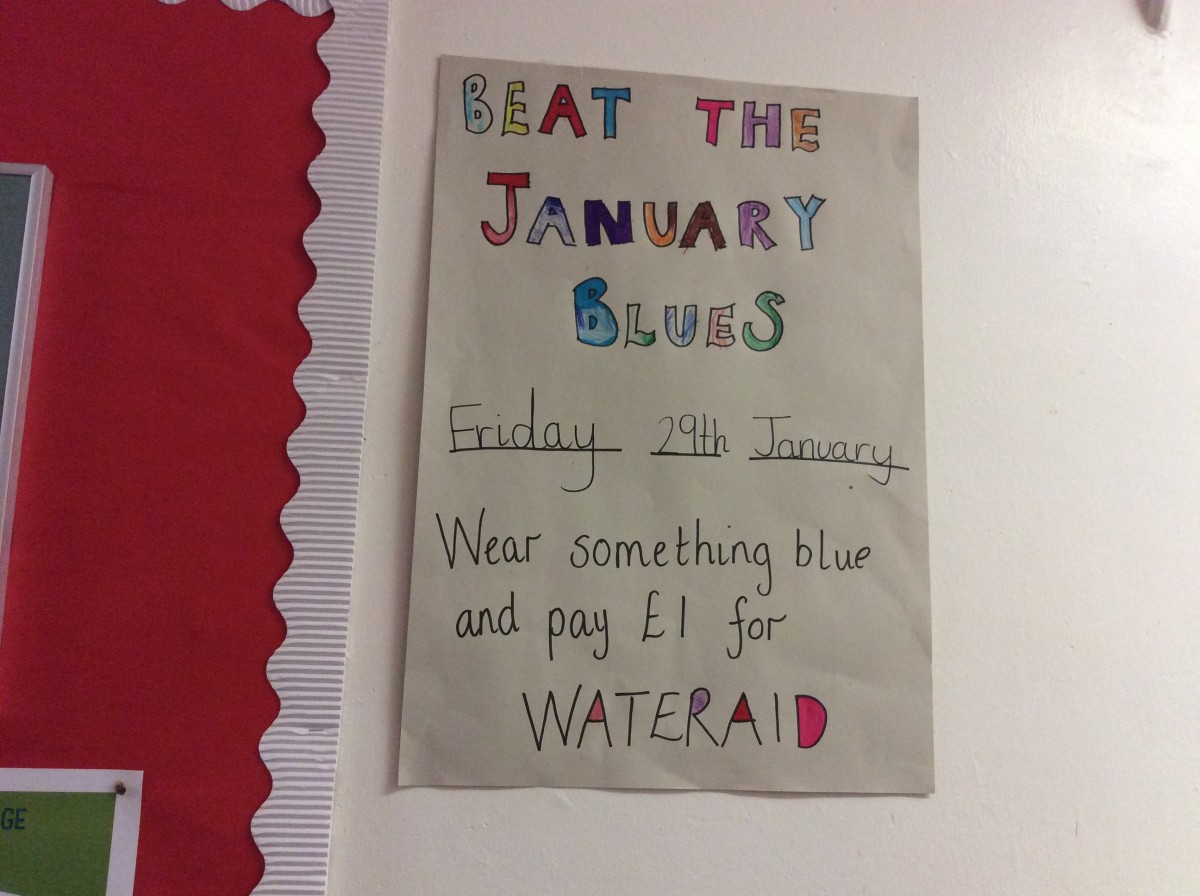 BEAT THE
JANUARY
BLUES
Friday 29th January
Wear something blue
and pay £1 for
WATERAID
GE